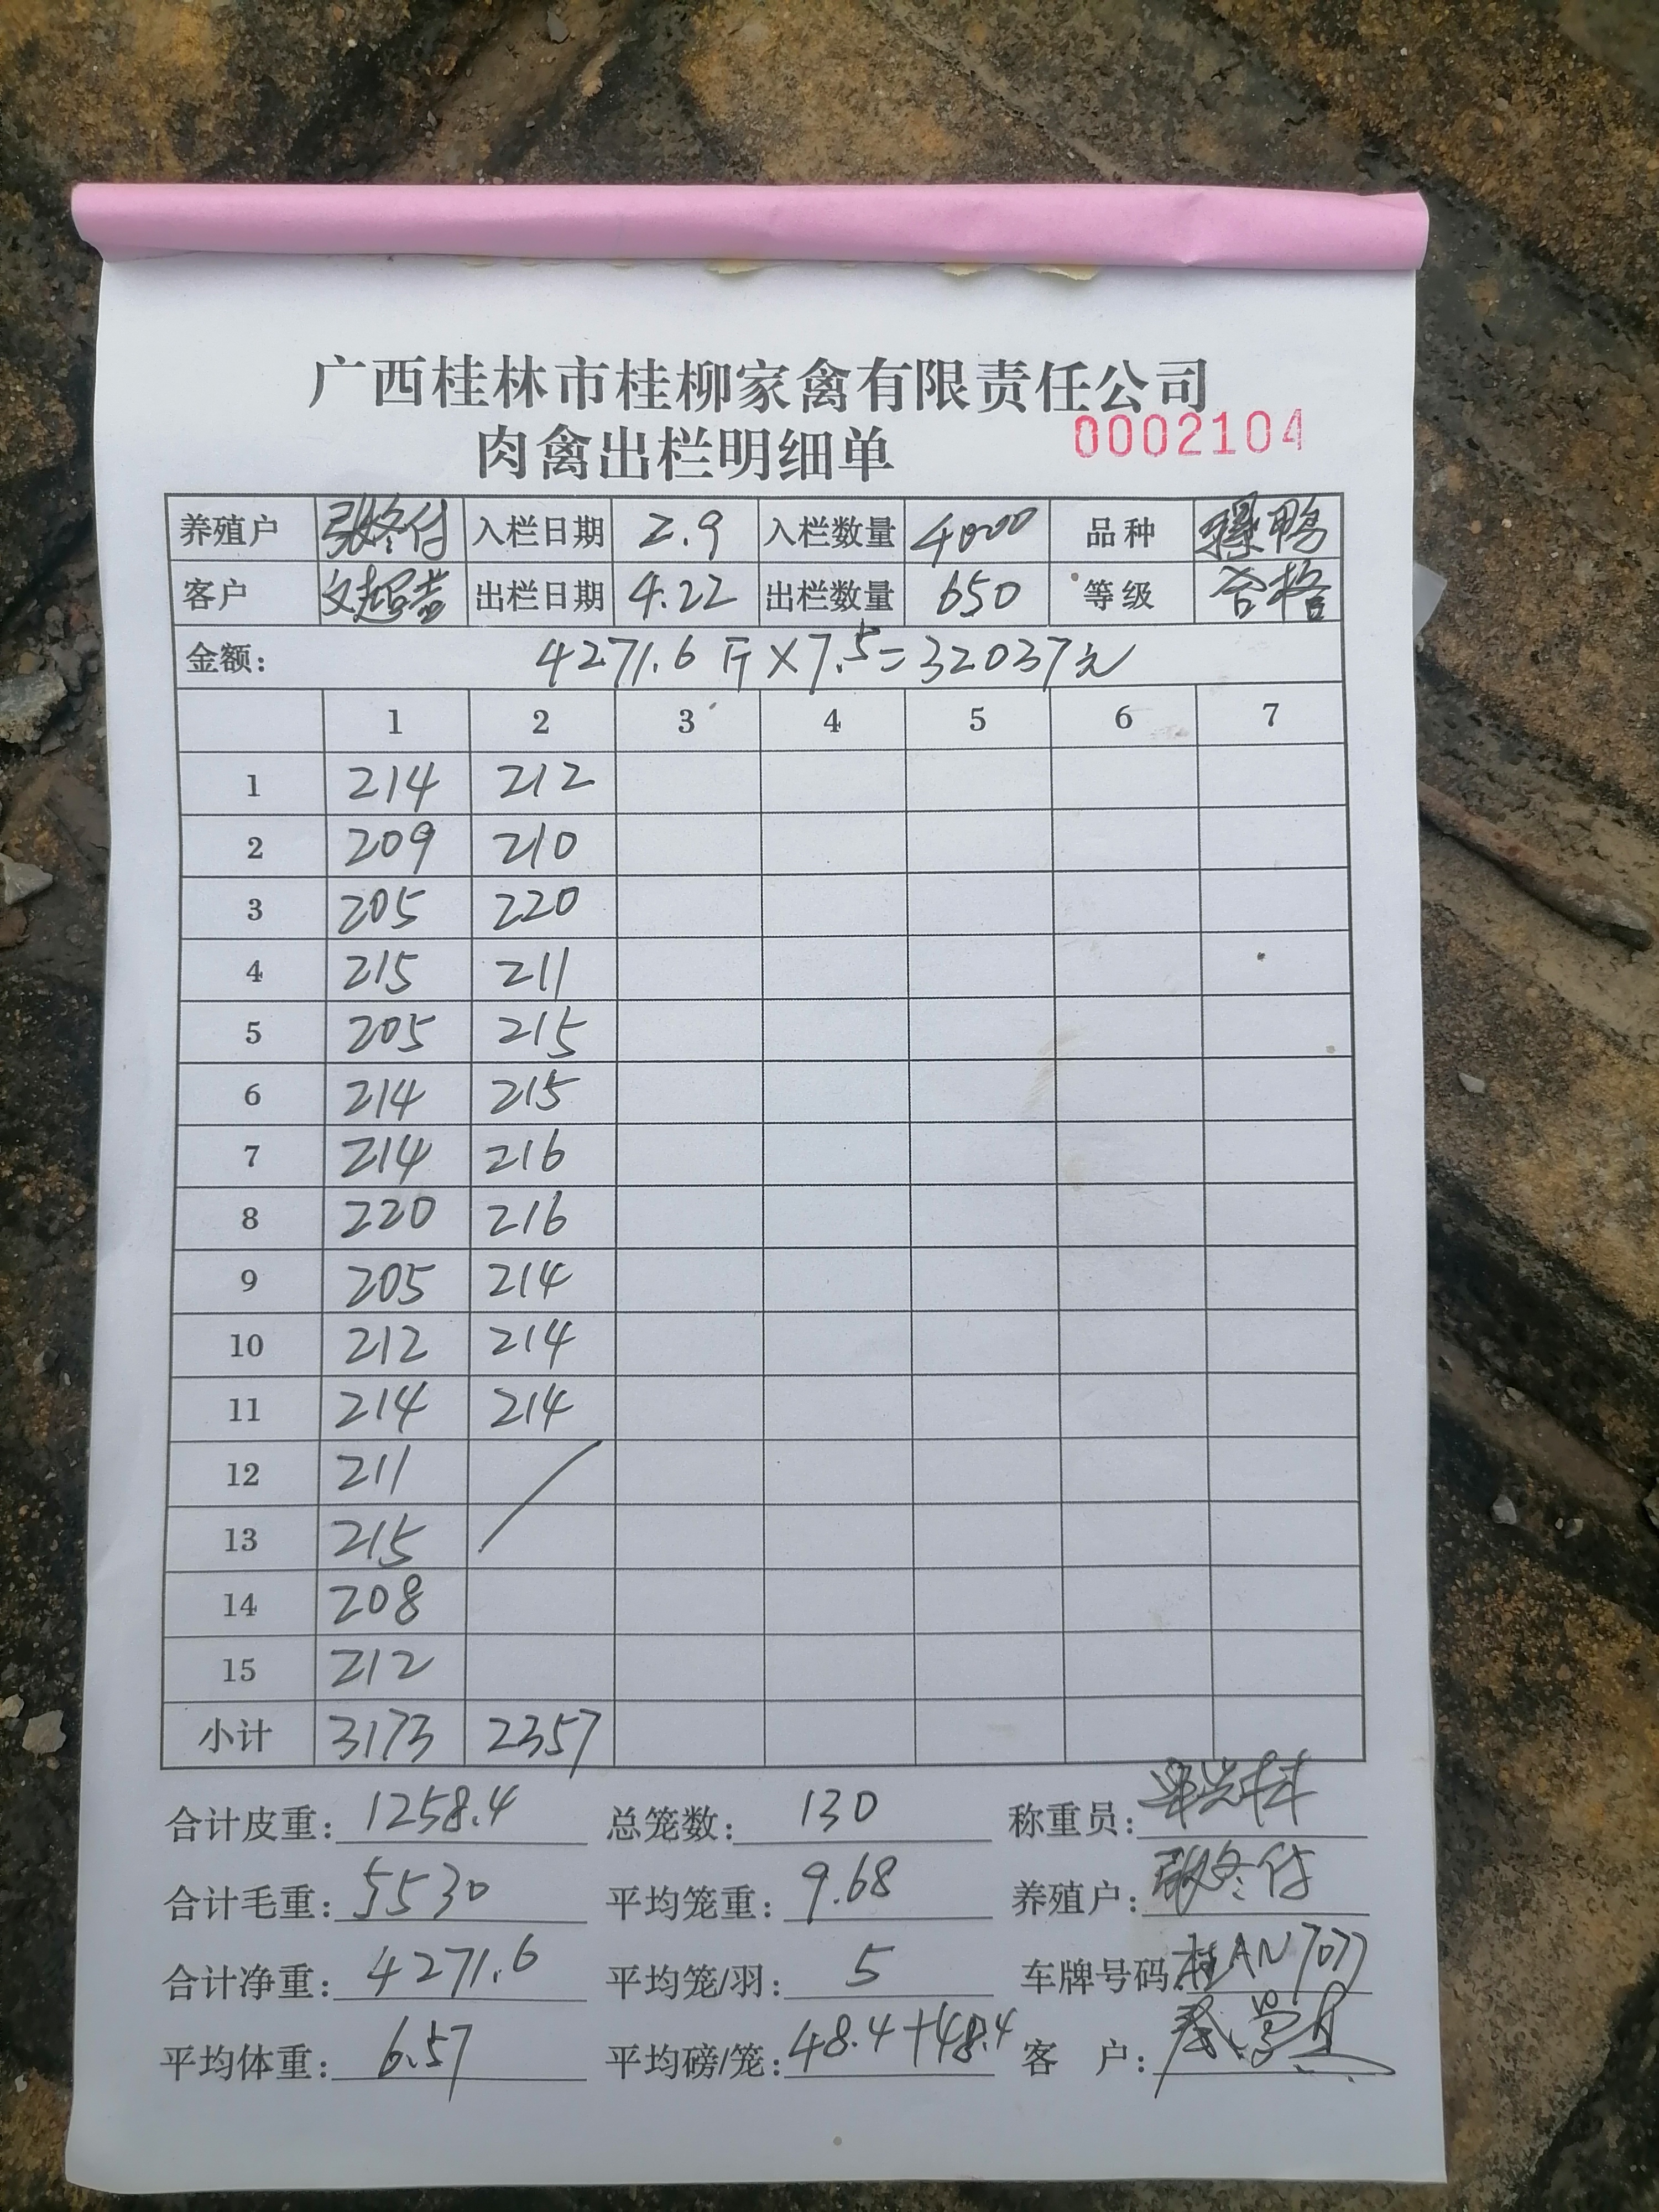 广西桂林市桂柳家禽有限责任公司
肉禽出栏明细单 0002104
养殖户 张冬付 入栏日期 2.9 入栏数量 4000 品种 鸭
客户 出栏日期 4.22 出栏数量 650 等级 合格
金额: 4271.6斤×7.5=32037元
1 2 3 4 5 6 7
1 214 212
2 209 210
3 205 220
4 215 211
5 205 215
6 214 215
7 214 216
8 220 216
9 205 214
10 212 214
11 214 214
12 211
13 215
14 208
15 212
小计 3173 2357
合计皮重: 1258.4 总笼数: 130 称重员:
合计毛重: 5530 平均笼重: 9.68 养殖户: 张冬付
合计净重: 4271.6 平均笼/羽: 5 车牌号码: 桂AN7077
平均体重: 6.57 平均磅/笼: 48.4+48.4 客 户: